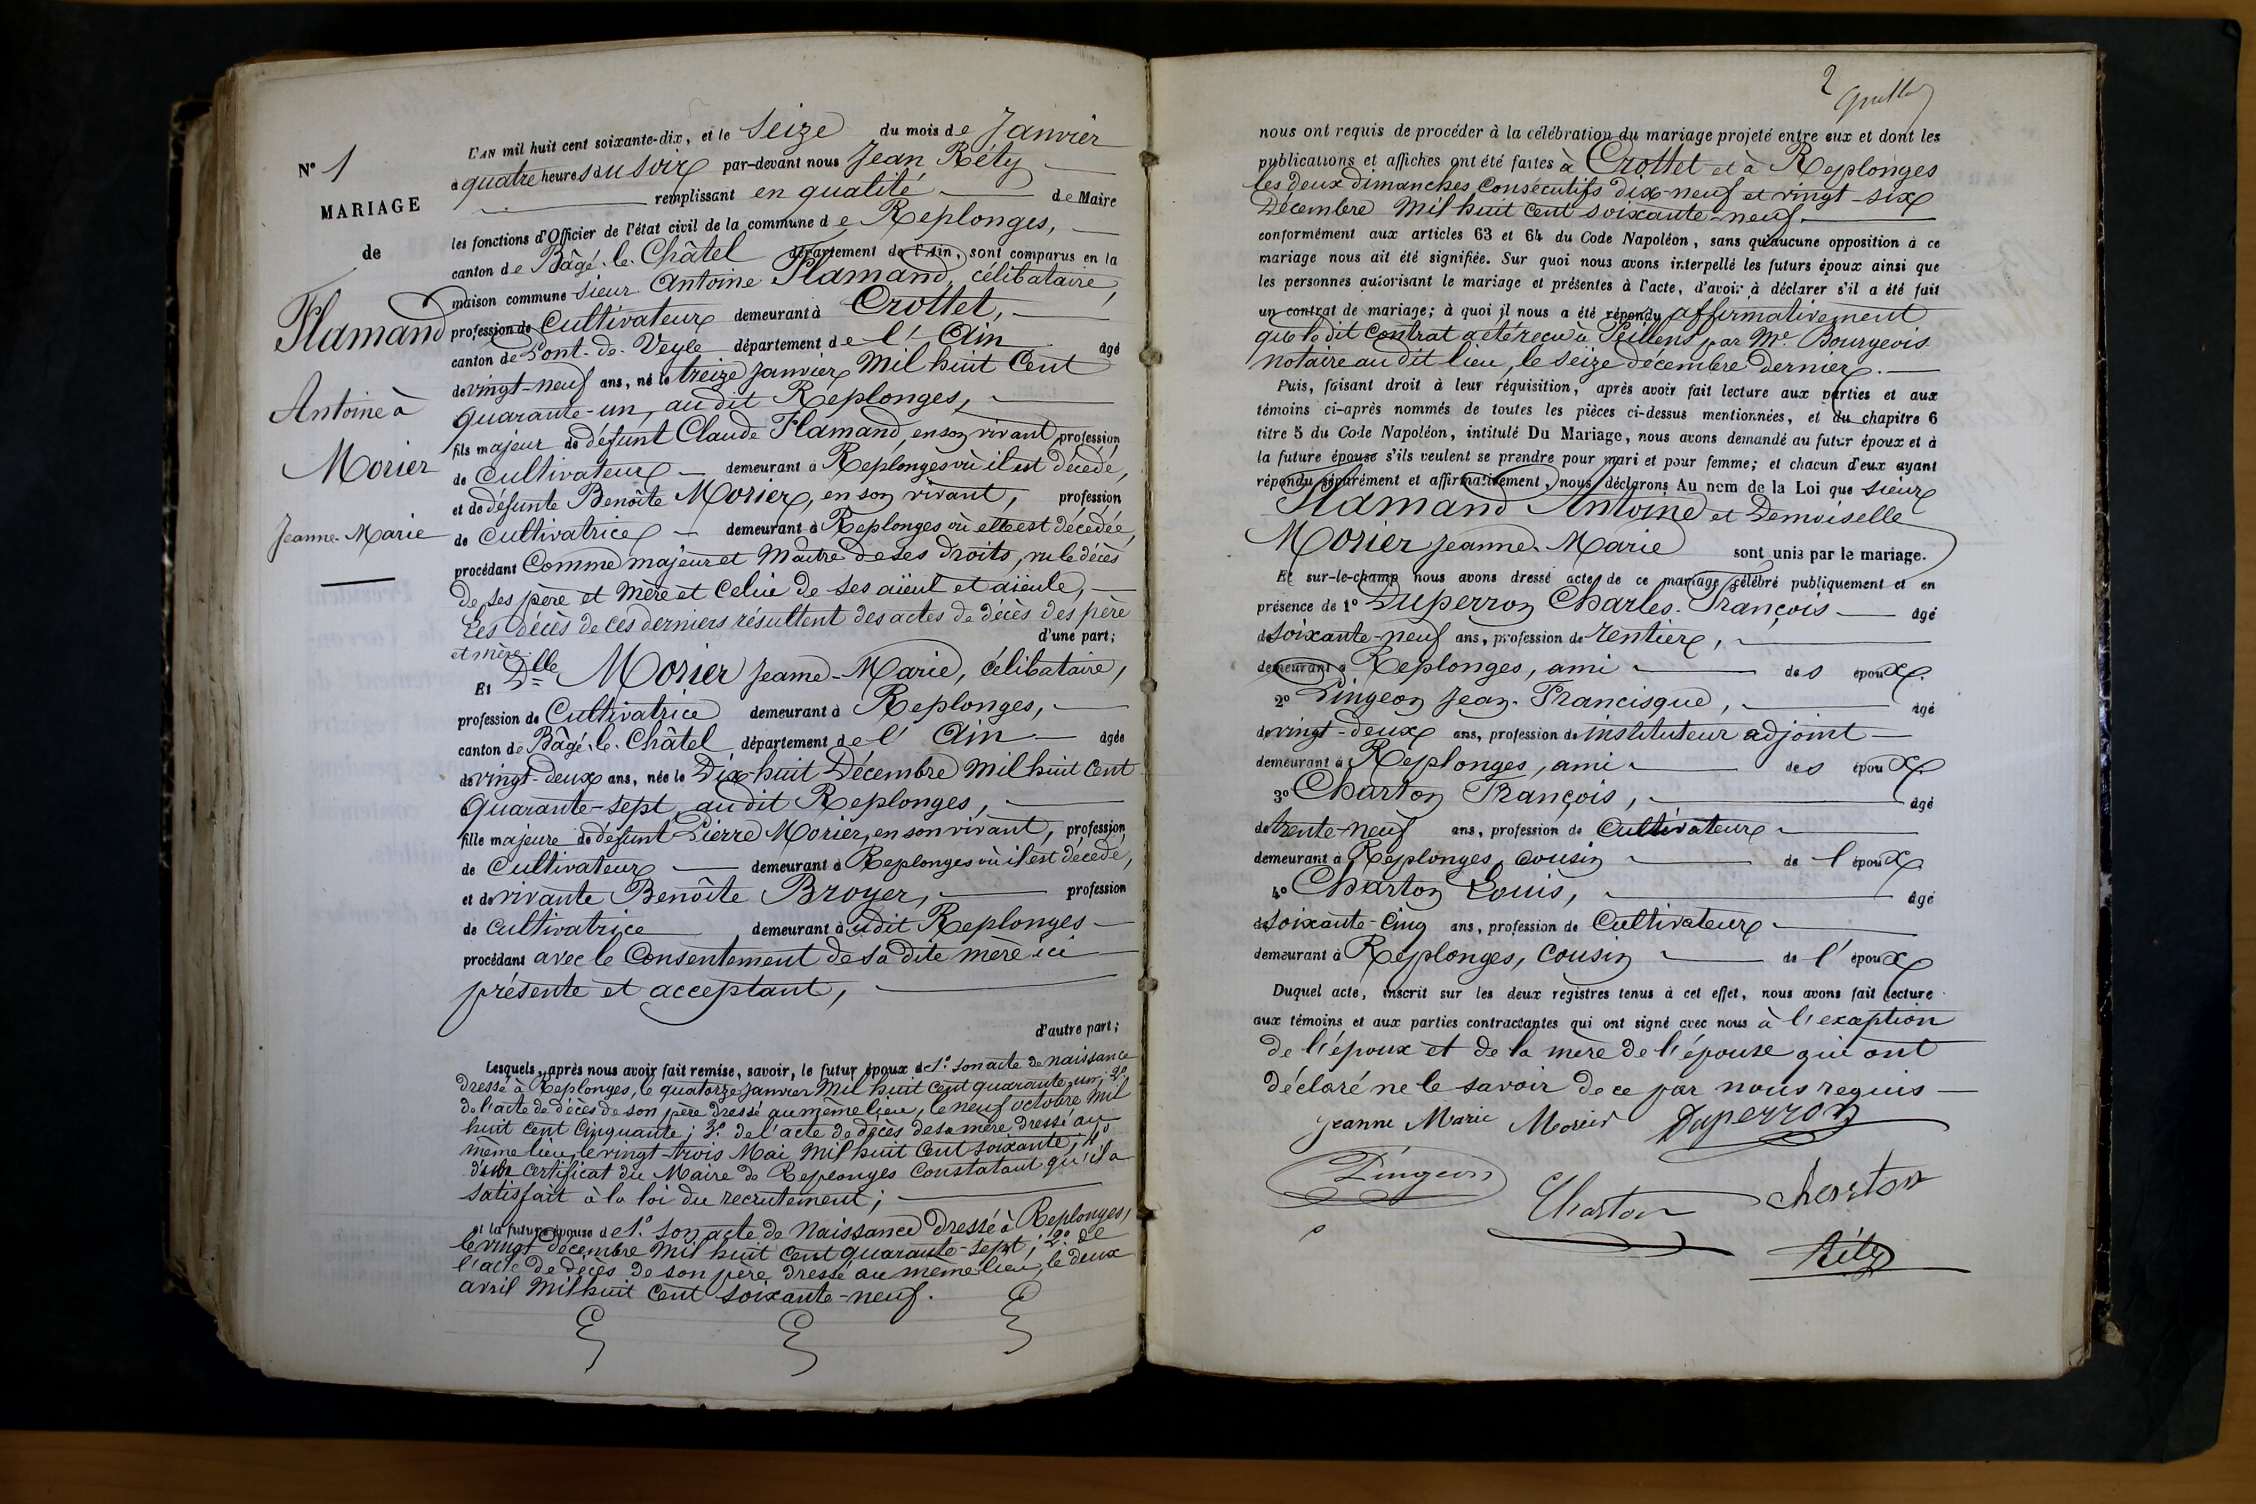 N° 1
MARIAGE
de
Flamand
Antoine à
Morier
Jeanne-Marie
L'AN mil huit cent soixante-dix, et le seize du mois de Janvier
à quatre heures du soir par-devant nous Jean Réty
remplissant en qualité de Maire
les fonctions d'Officier de l'état civil de la commune de Replonges,
canton de Bâgé-le-Châtel département de l'Ain, sont comparus en la
maison commune sieur Antoine Flamand, célibataire,
profession de Cultivateur demeurant à Crottet,
canton de Pont-de-Veyle département de l'Ain âgé
de vingt-neuf ans, né le treize janvier Mil huit Cent
quarante-un, au dit Replonges,
fils majeur de défunt Claude Flamand, en son vivant, profession
de Cultivateur demeurant à Replonges où il est décédé,
et de défunte Benoîte Morier, en son vivant, profession
de Cultivatrice demeurant à Replonges où elle est décédée,
procédant Comme majeur et Maître de ses droits, vu le décès
de ses père et mère et celui de ses aïeul et aïeule,
Les décès de ces derniers résultent des actes de décès des père
et mère. d'une part;
Et Dlle Morier Jeanne-Marie, célibataire,
profession de Cultivatrice demeurant à Replonges,
canton de Bâgé-le-Châtel département de l'Ain âgée
de vingt-deux ans, née le Dix-huit Décembre Mil huit Cent
quarante-sept, au dit Replonges,
fille majeure de défunt Pierre Morier, en son vivant, profession
de Cultivateur demeurant à Replonges où il est décédé,
et de vivante Benoîte Broyer, profession
de Cultivatrice demeurant audit Replonges
procédant avec le Consentement de sa dite mère ici
présente et acceptant,
d'autre part;
Lesquels, après nous avoir fait remise, savoir, le futur époux de 1° son acte de naissance
dressé à Replonges, le quatorze janvier Mil huit Cent quarante-un; 2°
de l'acte de décès de son père dressé au même lieu, le neuf octobre Mil
huit Cent Cinquante; 3° de l'acte de décès de sa mère dressé au
même lieu, le vingt-trois Mai Mil huit Cent soixante; 4°
d'un certificat du Maire de Replonges Constatant qu'il a
satisfait à la loi du recrutement;
et la future épouse de 1° son acte de Naissance dressé à Replonges,
le vingt décembre Mil huit Cent quarante-sept; 2° de
l'acte de décès de son père, dressé au même lieu, le deux
avril Mil huit Cent soixante-neuf.
2
nous ont requis de procéder à la célébration du mariage projeté entre eux et dont les
publications et affiches ont été faites à Crottet et à Replonges
les deux dimanches Consécutifs dix-neuf et vingt-six
Décembre Mil huit Cent soixante-neuf
conformément aux articles 63 et 64 du Code Napoléon, sans qu'aucune opposition à ce
mariage nous ait été signifiée. Sur quoi nous avons interpellé les futurs époux ainsi que
les personnes autorisant le mariage et présentes à l'acte, d'avoir à déclarer s'il a été fait
un contrat de mariage; à quoi il nous a été répondu affirmativement
que le dit Contrat a été reçu à Peillens par Me. Bourgeois
notaire au dit lieu, le seize décembre dernier.
Puis, faisant droit à leur réquisition, après avoir fait lecture aux parties et aux
témoins ci-après nommés de toutes les pièces ci-dessus mentionnées, et du chapitre 6
titre 5 du Code Napoléon, intitulé Du Mariage, nous avons demandé au futur époux et à
la future épouse s'ils veulent se prendre pour mari et pour femme; et chacun d'eux ayant
répondu séparément et affirmativement, nous déclarons Au nom de la Loi que sieur
Flamand Antoine et Demoiselle
Morier Jeanne-Marie sont unis par le mariage.
Et sur-le-champ nous avons dressé acte de ce mariage célébré publiquement et en
présence de 1° Duperron Charles-François âgé
de soixante-neuf ans, profession de rentier,
demeurant à Replonges, ami des époux.
2° Pingeon Jean-Francisque, âgé
de vingt-deux ans, profession de instituteur adjoint
demeurant à Replonges, ami des époux.
3° Charton François, âgé
de trente-neuf ans, profession de Cultivateur
demeurant à Replonges, cousin de l'époux
4° Charton Louis, âgé
de soixante-cinq ans, profession de Cultivateur
demeurant à Replonges, cousin de l'époux
Duquel acte, inscrit sur les deux registres tenus à cet effet, nous avons fait lecture
aux témoins et aux parties contractantes qui ont signé avec nous à l'exception
de l'époux et de la mère de l'épouse qui ont
déclaré ne le savoir de ce par nous requis
Jeanne Marie Morier Duperron
Pingeon
Charton Charton
Réty